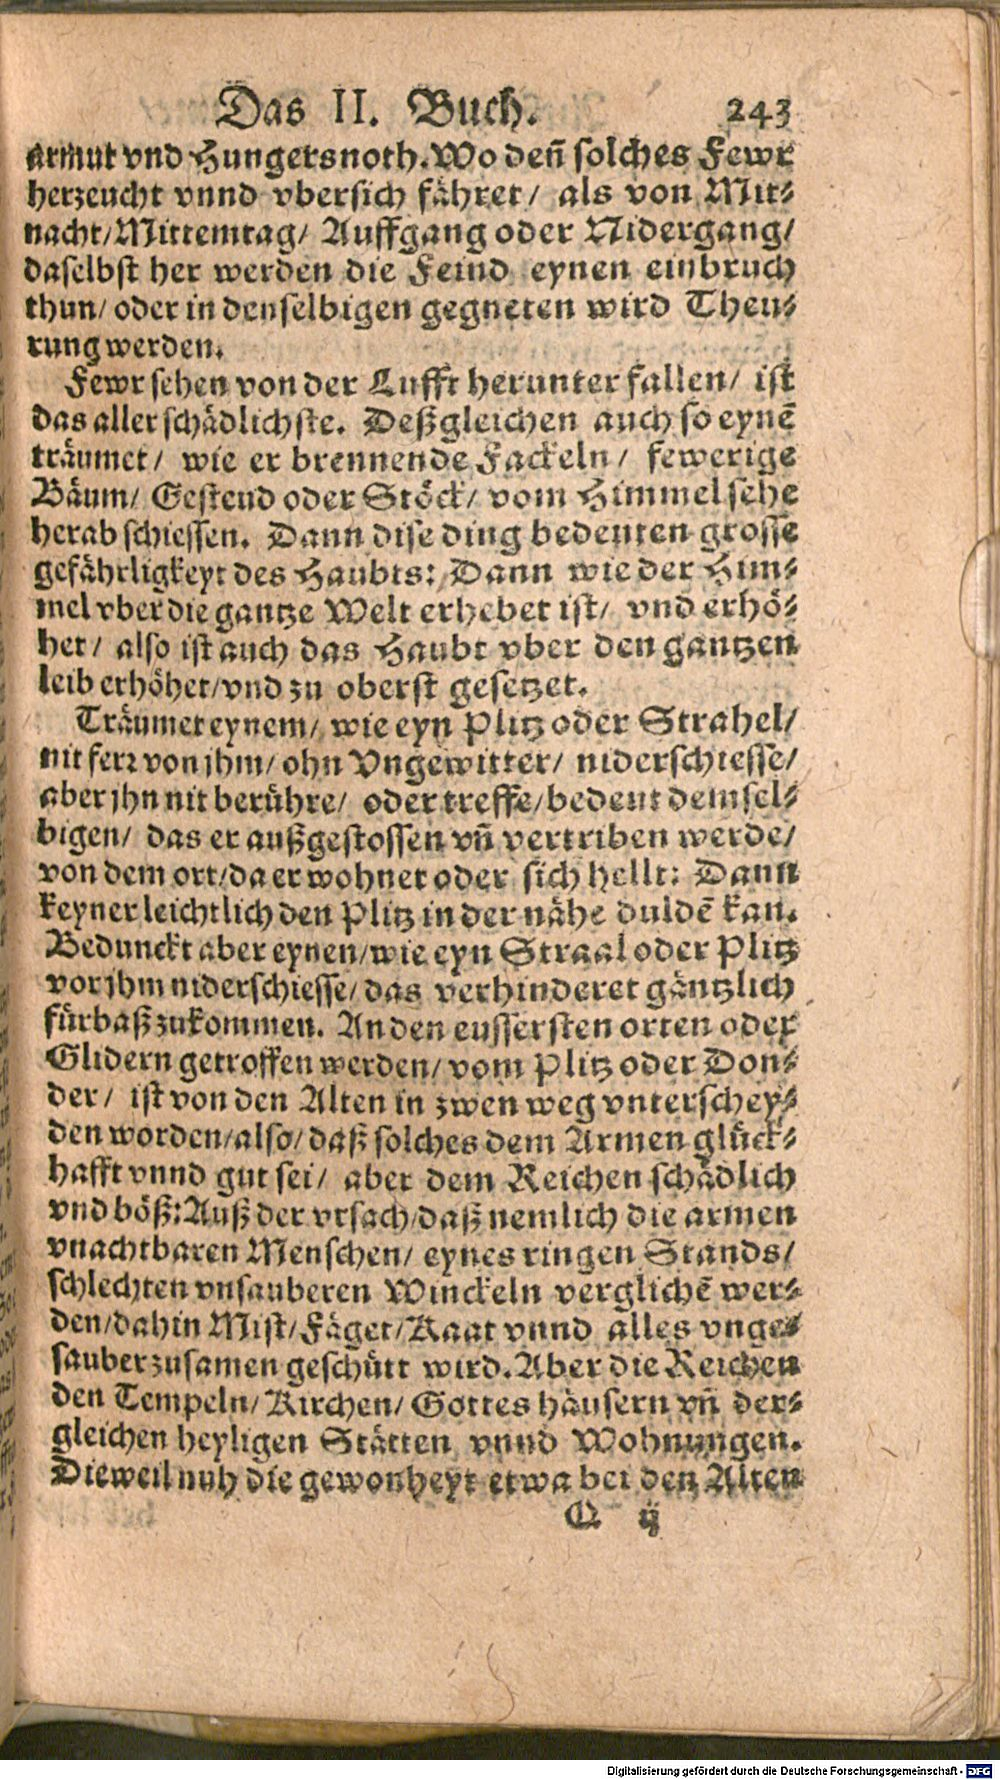 Das II. Buch. 243
armut vnd Hungersnoth. Wo deñ solches Fewr
herzeucht vnnd vbersich fähret/ als von Mit-
nacht/ Mittemtag/ Auffgang oder Nidergang/
daselbst her werden die Feind eynen einbruch
thun/ oder in denselbigen gegneten wird Theu-
rung werden.
Fewr sehen von der Lufft herunter fallen/ ist
das aller schädlichste. Deßgleichen auch so eynẽ
träumet/ wie er brennende Fackeln/ fewerige
Bäum/ Gestend oder Stöck/ vom Himmel sehe
herab schiessen. Dann dise ding bedeuten grosse
gefährligkeyt des Haubts: Dann wie der Him-
mel vber die gantze Welt erhebet ist/ vnd erhö-
het/ also ist auch das Haubt vber den gantzen
leib erhöhet/ vnd zu oberst gesetzet.
Träumet eynem/ wie eyn Plitz oder Strahel/
nit ferr von jhm/ ohn Vngewitter/ niderschiesse/
aber jhn nit berühre/ oder treffe/ bedeut demsel-
bigen/ das er außgestossen vñ vertriben werde/
von dem ort/ da er wohnet oder sich hellt: Dann
keyner leichtlich den Plitz in der nähe duldẽ kan.
Bedunckt aber eynen/ wie eyn Straal oder Plitz
vor jhm niderschiesse/ das verhinderet gäntzlich
fürbaß zukommen. An den eussersten orten oder
Glidern getroffen werden/ vom Plitz oder Don-
der/ ist von den Alten in zwen weg vnterschey-
den worden/ also/ daß solches dem Armen glück-
hafft vnnd gut sei/ aber dem Reichen schädlich
vnd böß: Auß der vrsach/ daß nemlich die armen
vnachtbaren Menschen/ eynes ringen Stands/
schlechten vnsauberen Winckeln verglichẽ wer-
den/ dahin Mist/ Fäget/ Kaat vnnd alles vnge-
sauber zusamen geschütt wird. Aber die Reichen
den Tempeln/ Kirchen/ Gottes häusern vñ der-
gleichen heyligen Stätten vnnd Wohnungen.
Dieweil nuh die gewonheyt etwa bei den Alten
Q ij
Digitalisierung gefördert durch die Deutsche Forschungsgemeinschaft - DFG